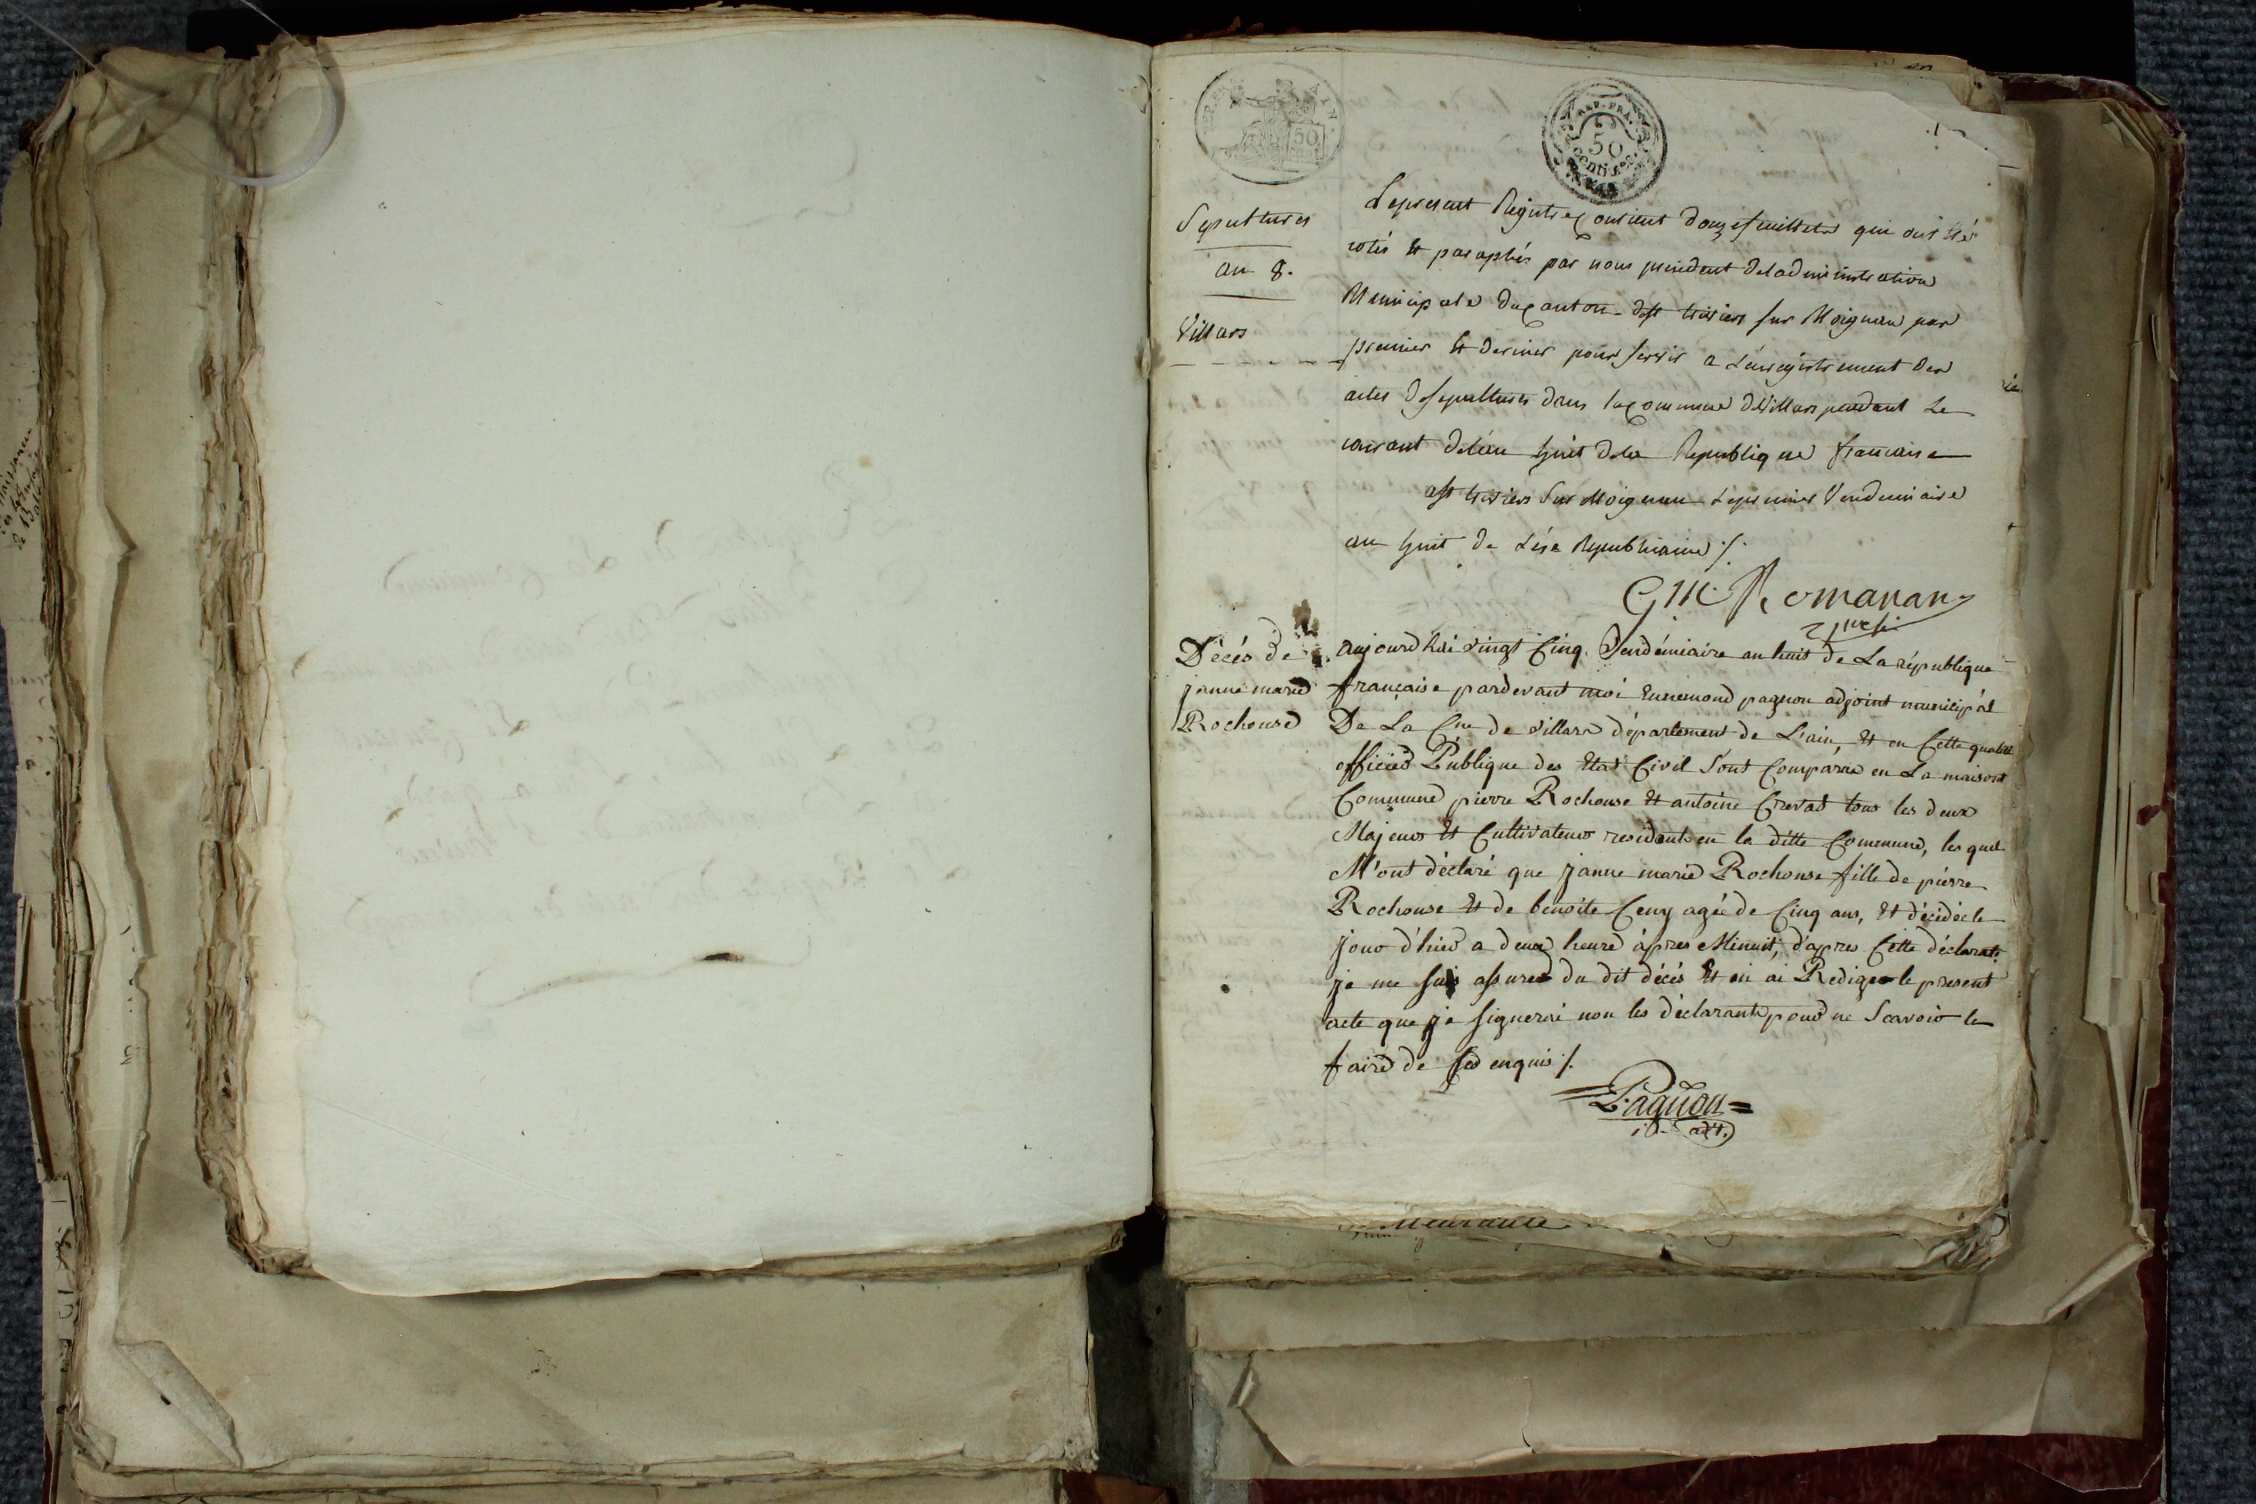 REP. FRA.
50
centimes
50
Sepultures
an 8.
Villars
Le present Registre Contient douze feuillets qui ont étés
cotés et paraphés par nous president de l'administration
Municipale du Canton de st trivier sur Moignan par
premier et dernier pour servir a L'enregistrement des
actes de sepultures dans la Commune de Villars pendant Le
courant de l'an huit de la Republique francaise
a st trivier sur Moignan Le premier Vendemiaire
an huit de L'ére Republicaine ./.
Romanan
Décés de
janne marie
Rochouse
aujourd hui vingt Cinq Vendémiaire an huit de La république
française pardevant moi Ennemond pagnon adjoint municipal
De La Cne de villars département de L'ain, et en Cette qualité
officier Publique des Etat Civil Sont Comparue en La maison
Commune pierre Rochouse et antoine Crevat tous les deux
Majeurs et Cultivateurs resident en la ditte Commune, les quel
M'ont déclaré que janne marie Rochouse fille de pierre
Rochouse et de benoite Ceny agée de Cinq ans, et décidée le
jour d'hier a deux heure àpres Minuit, d'apres Cette déclarat.
je me suis assuré du dit décés et en ai Rediger le present
acte que je signerai non les déclarants pour ne Scavoir le
faire de se enquis ./.
Pagnon
adt.